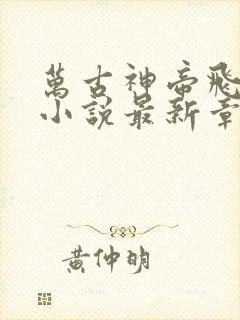 萬古神帝飛
小說最新章
黃仲明